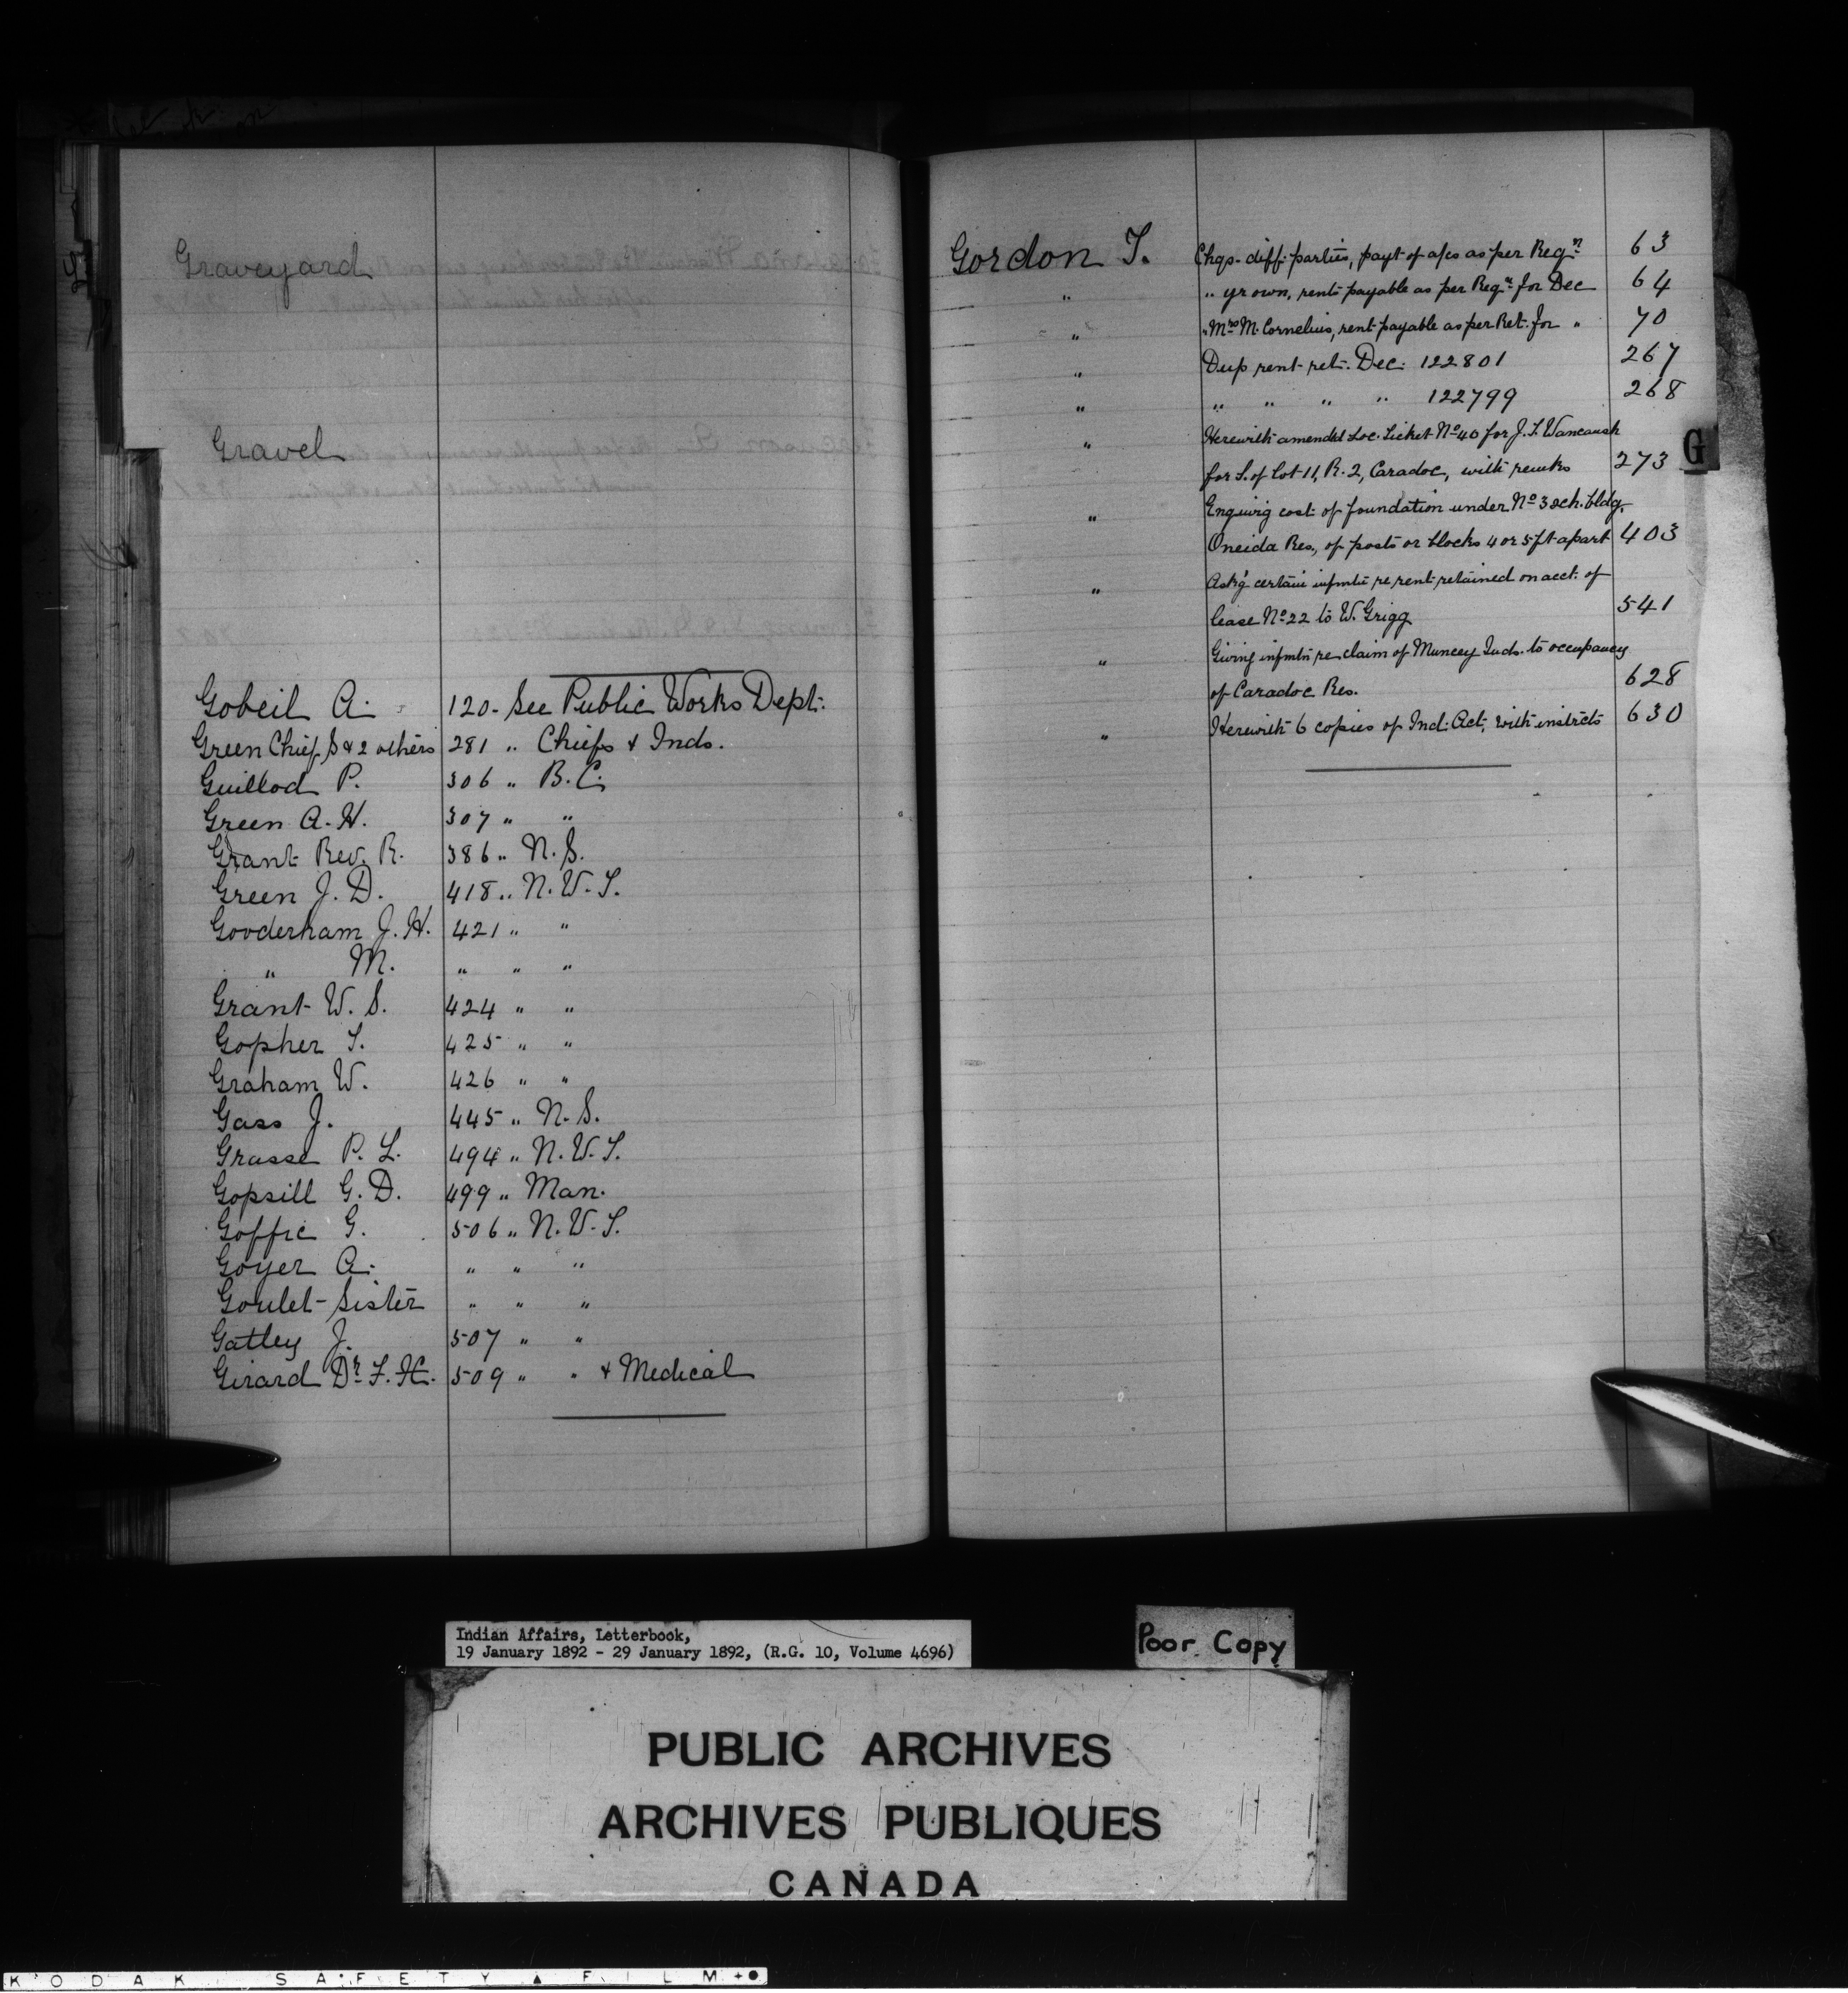 Graveyard
Gravel
Gobeil A. 120 - See Public Works Dept.
Green Chief S & 2 others 281 " Chiefs & Inds.
Guillod P. 306 " B.C.
Green A. H. 307 " "
Grant Rev. R. 386 " N. S.
Green J. D. 418 " N. W. T.
Gooderham J. H. 421 " "
" M. " " "
Grant W. S. 424 " "
Gopher T. 425 " "
Graham W. 426 " "
Gass J. 445 " N. S.
Grasse P. L. 494 " N. W. T.
Gopsill G. D. 499 " Man.
Goffic G. 506 " N. W. T.
Goyer A. " " "
Goulet Sister " " "
Gatley J. 507 " "
Girard Dr. F. X. 509 " " & Medical
Gordon T. Chqs. diff. parties, payt of a/cs as per Reqn. 63
" " yr own, rents payable as per Reqn. for Dec 64
" " Mrs M. Cornelius, rent payable as per Ret. for " 70
" Dup rent ret. Dec. 122801 267
" " " " " 122799 268
" Herewith amended Loc. Ticket No 40 for J. T. Wancaush
for S. of Lot 11, R. 2, Caradoc, with remks 273
" Enquirg cost of foundation under No 3 sch. bldg.
Oneida Res., of posts or blocks 4 or 5 ft apart 403
" Ask'g certain infmtn re rent retained on acct. of
lease No 22 to W. Grigg 541
" Giving infmtn re claim of Muncey Inds. to occupancy
of Caradoc Res. 628
" Herewith 6 copies of Ind. Act, with instrcts 630
G
Indian Affairs, Letterbook,
19 January 1892 - 29 January 1892, (R.G. 10, Volume 4696)
Poor Copy
PUBLIC ARCHIVES
ARCHIVES PUBLIQUES
CANADA
KODAK SAFETY FILM